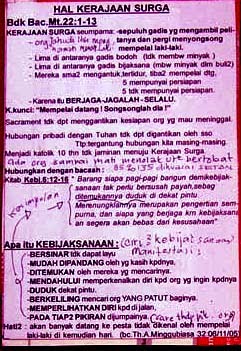 HAL KERAJAAN SURGA
Bdk Bac.Mt.22:1-13
KERAJAAN SURGA seumpama: -sepuluh gadis yg mengambil peli-
tanya dan pergi menyongsong
mempelai laki-laki.
- Lima di antaranya gadis bodoh (tdk membw minyak)
- Lima di antaranya gadis bijaksana (mbw minyak dlm buli2)
- Mereka sma2 mengantuk,tertidur, tiba2 mempelai dtg,
5 mempunyai persiapan
5 tdk mempunyai persiapan.
- Karena itu BERJAGA-JAGALAH - SELALU.
K.kunci: "Mempelai datang ! Songsonglah dia !"
Sacrament tdk dpt menggantikan kesiapan org yg mau meninggal.
Hubungan pribadi dengan Tuhan tdk dpt digantikan oleh sso
Ttp:tergantung hubungan kita masing-masing.
Menjadi katolik 10 thn tdk jaminan menuju Kerajaan Surga.
Ada org sampai mati menolak utk bertobat
Hubungkan dengan bacaan:
Kitab Kebi.6:12-16 " Barang siapa pagi-pagi bangun demi kebijak-
sanaan tak perlu bersusah payah, sebab
ditemukannya duduk di dekat pintu.
Merenungkannya merupakan pengertian sem-
purna, dan siapa yang berjaga krn kebijaksana
an segera akan bebas dari kesusahan"
Apa itu KEBIJAKSANAAN:
-BERSINAR tdk dapat layu
-MUDAH DIPANDANG oleh yg kasih kpdnya,
-DITEMUKAN oleh mereka yg mencarinya.
-MENDAHULUI memperkenalkan diri kpd org yg ingin kpdnya
-DUDUK dekat pintu.
-BERKELILING mencari org YANG PATUT baginya.
-MEMPERLIHATKAN DIRI kpd di jalan.
-PADA TIAP2 PIKIRAN dijumpainya.
Hati2 : akan banyak datang ke pesta tidak dikenal oleh mempelai
laki-laki di kemudian hari. (bc.Th.A.Minggubiasa 32:06/11/05)